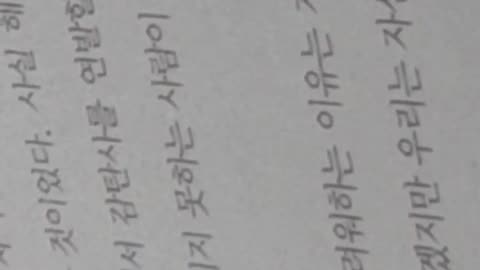 것이었다. 사실 해
서 감탄사를 연발할
지 못하는 사람이
려워하는 이유는
겠지만 우리는 자